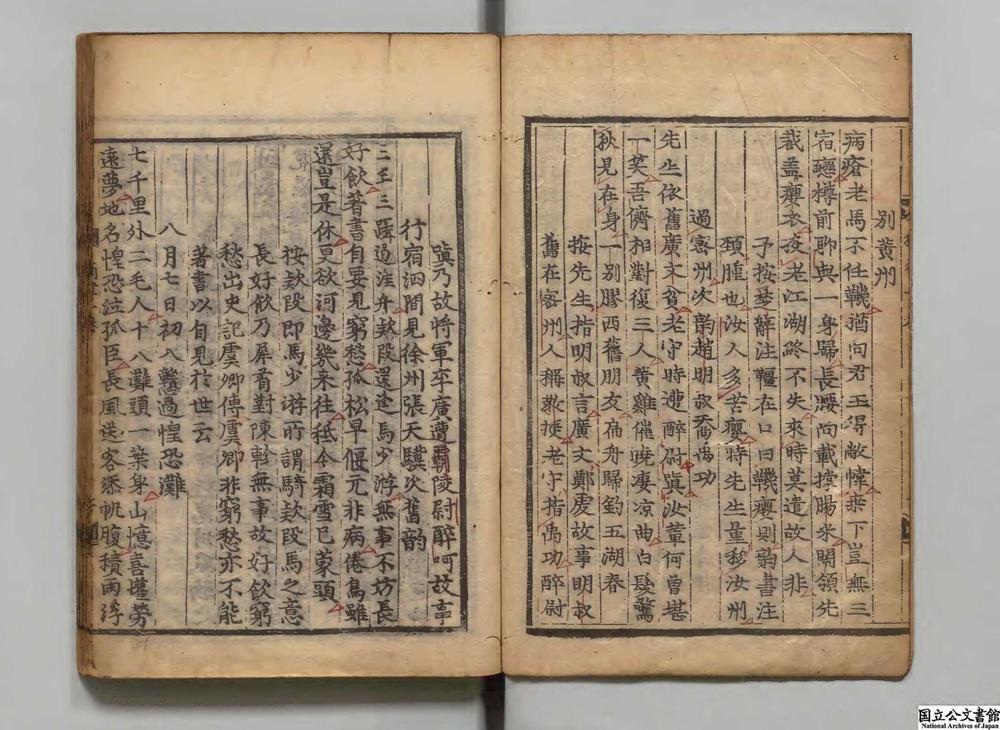 別黃州
病瘡老馬不任鞿猶向君王得敝幃桒下豈無三
宿戀樽前聊與一身歸長腰尚載撑腸米闊領先
裁盖癭衣夜老江湖終不失來時莫遣故人非
予按楚辭注韁在口曰鞿癭則韵書注
頚腫也汝人多苦癭時先生量移汝州
過宻州次韵趙明叔喬禹功
先生依舊廣文貧老守時遭醉尉瞋汝軰何曾堪
一笑吾儕相對復三人黄雞催曉凄凉曲白髮驚
秋見在身一別膠西舊朋友扁舟歸釣五湖春
按先生指明叔言廣文鄭虔故事明叔
舊在宻州人稱教授老守指禹功醉尉
瞋乃故將軍李廣遭覇陵尉醉呵故事
行宿泗間見徐州張天驥次舊韵
二三過淮舟欵段還逢馬少游無事不妨長
好飲著書自要見窮愁孤松早偃元非病倦鳥雖
還豈是休更欲河邊幾來往秪今霜雪已蒙頭
按欵段即馬少游所謂騎欵段馬之意
長好飲乃屏居對陳軫無事故好飲窮
愁出史記虞卿傳虞卿非窮愁亦不能
著書以自見於世云
八月七日初入贛過惶恐灘
七千里外二毛人十八灘頭一葉身山憶喜歡勞
遠夢地名惶恐泣孤臣長風送客添帆腹積雨浮
国立公文書館
National Archives of Japan